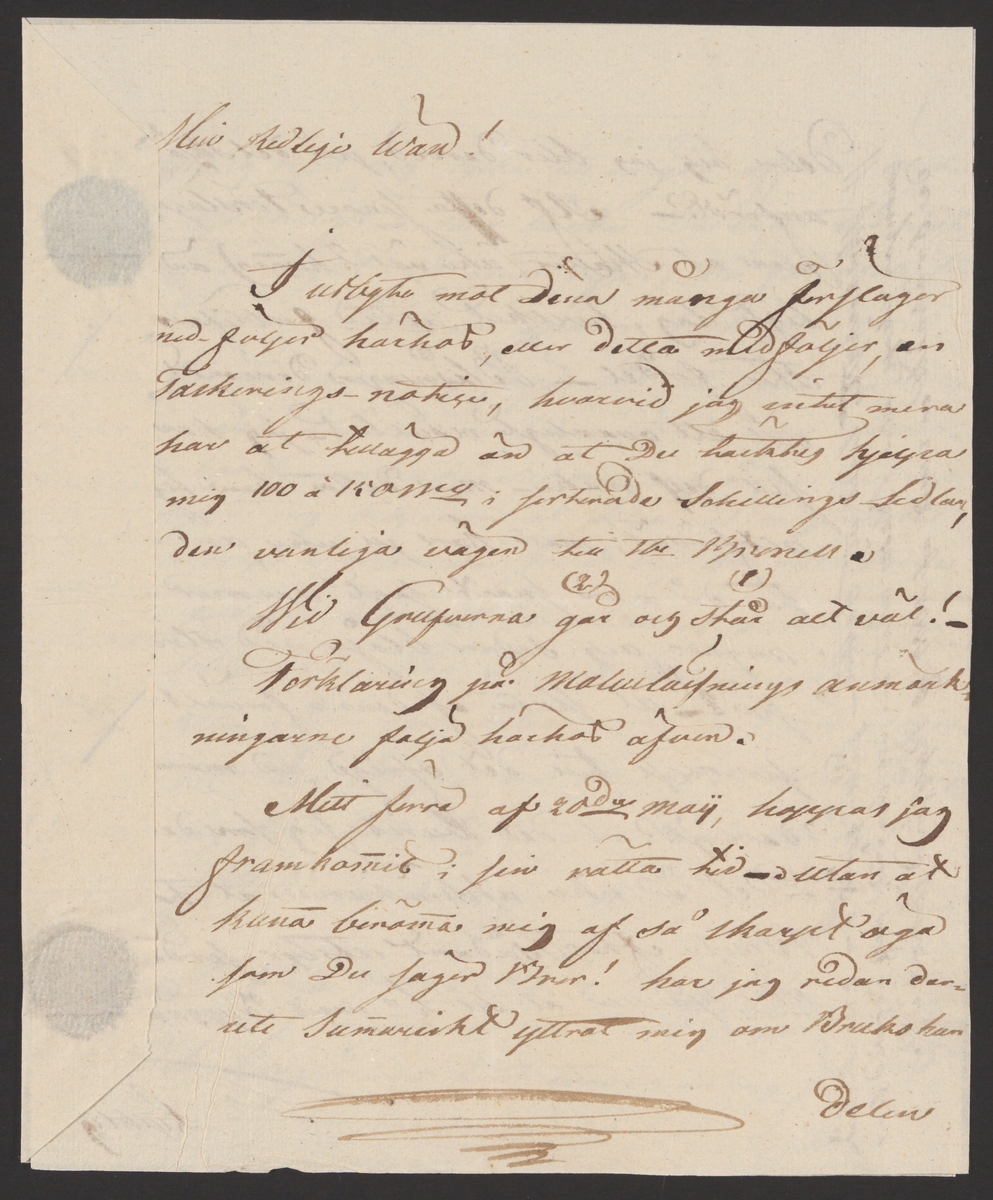 Min Redlige Wän!
I utbyte mot Dina många förslager
ned-följer härhos, eller detta medföljer, en
Tackerings-notice, hvarvid jag intet mera
har at tillägga än at Du täcktes hjelpa
mig 100 à 150 i sorterade Schillings-Sedlar,
den vanliga vägen till
Wid Grufvorna går (2) och står (1) alt väl!–
Förklaring på anmärk-
ningarne följa härhos äfven.
Mitt förra af 20de Maij, hoppas jag
framkom̄it i sin rätta tid – utan at
kun̄a beröm̄a mig af så skarpt öga
som Du säger Bror! har jag redan der-
uti Sum̄ariskt yttrat mig om Brukshan
delen